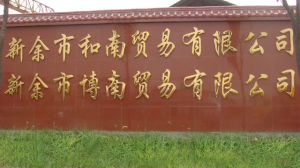 新余市和南贸易有限公司
新余市博南贸易有限公司